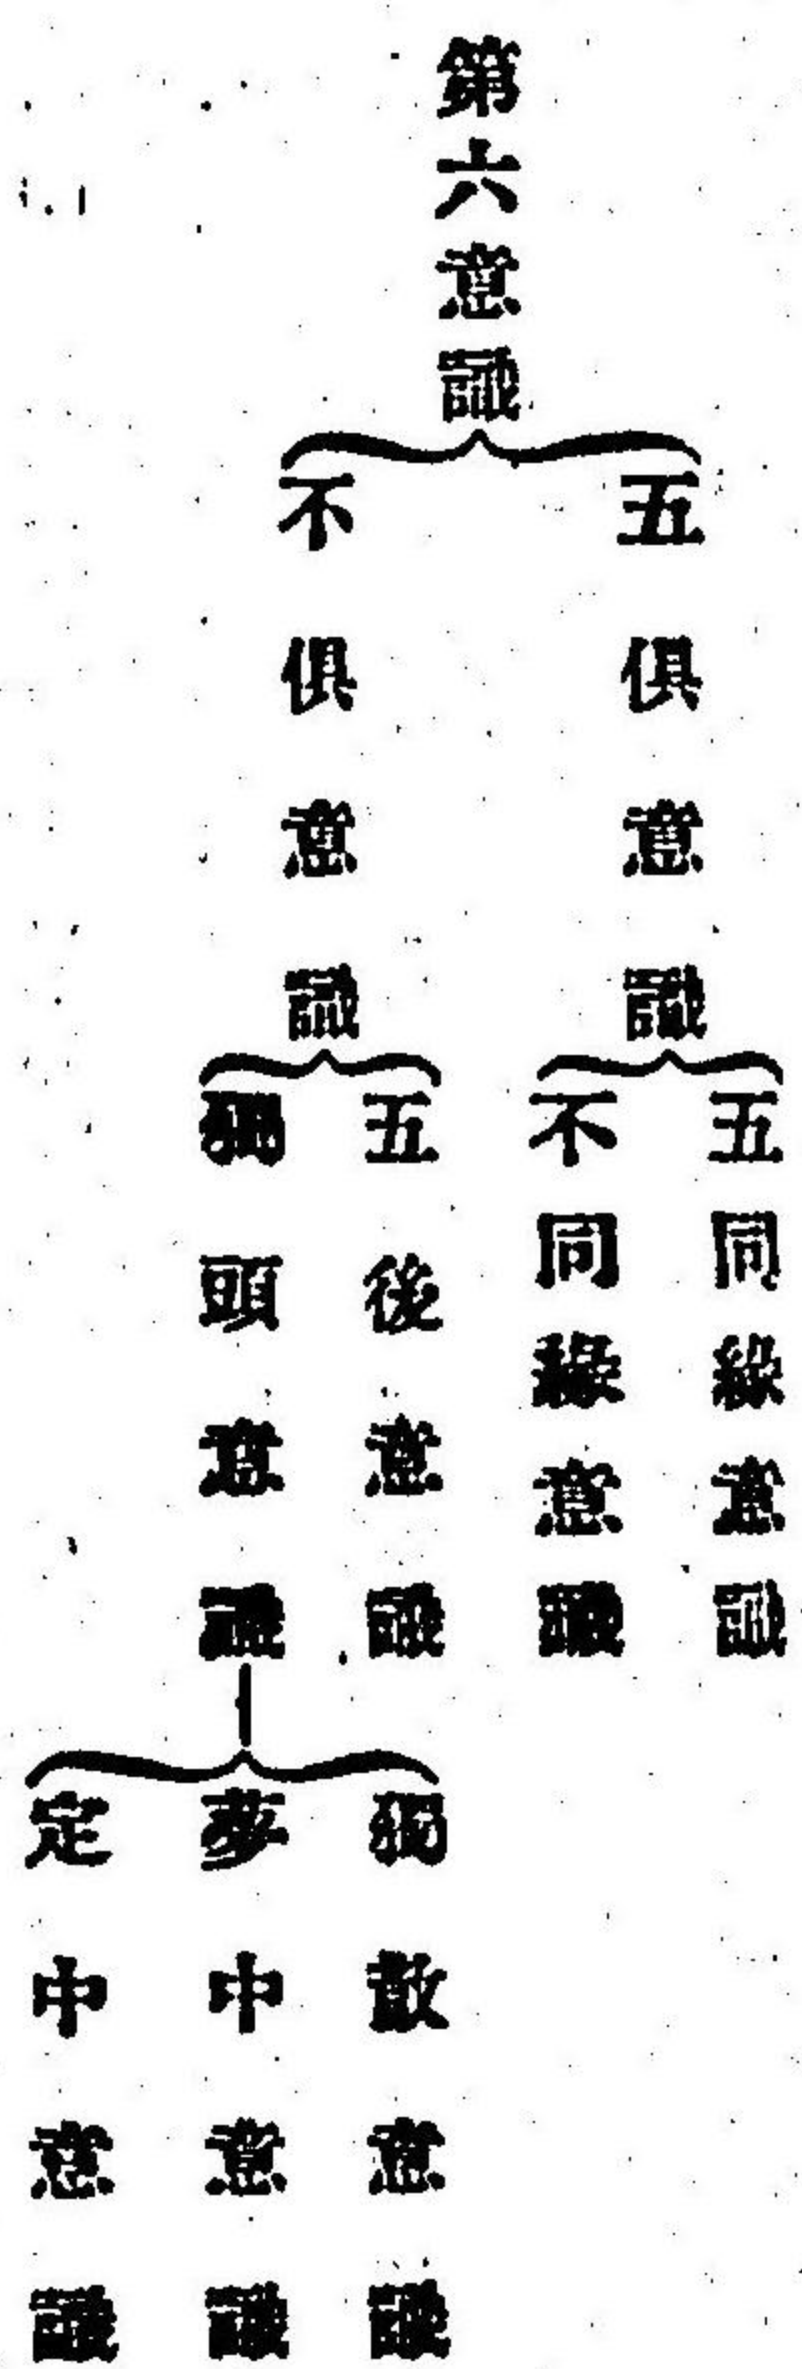 第六意識
五俱意識
不俱意識
五同緣意識
不同緣意識
五後意識
獨頭意識
獨散意識
夢中意識
定中意識